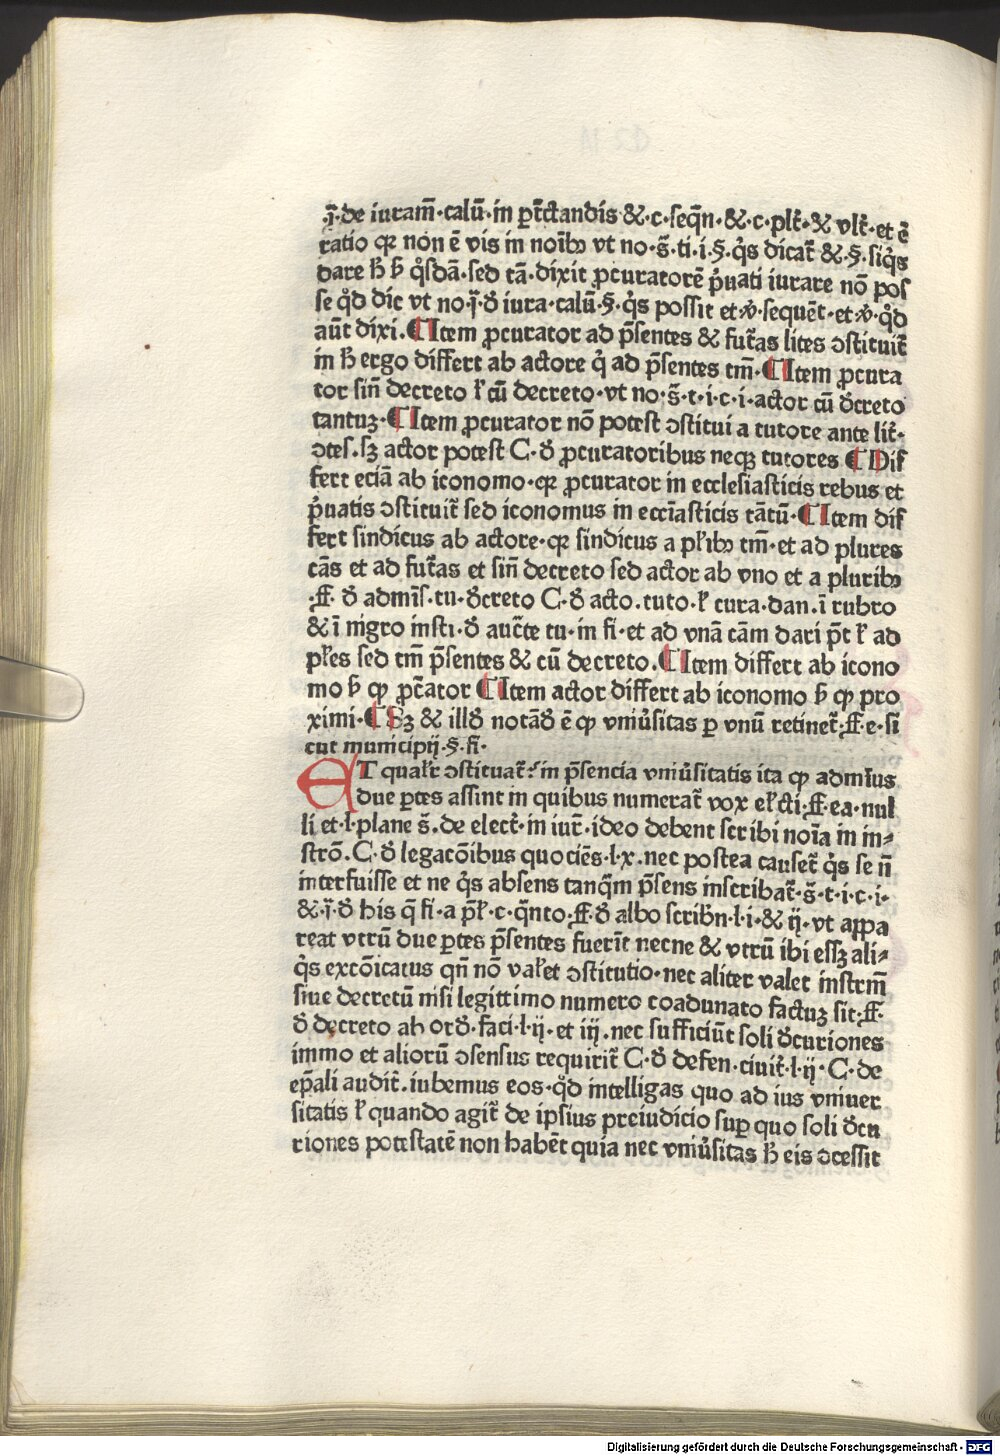 .j̄·de iuram̄·calū·in ꝑt̄ctandis &·c·seqn̄·&·c·plt̄·& vlt̄·et ē
ratio qꝛ non ē vis in noīb⁹ vt no·s̄·ti·i·§·q̇s dicat̄ &·§·siq̇s
dare ħ ƀ q̊sdā·sed tā·dixit ꝓcuratorē ṗuati iurare nō pos
se q̊d dic̄ vt no·j̄·ð iura·calū·§·q̇s possit et ꝟ·sequēt·et ꝟ·q̊d
aūt dixi·¶Item ꝓcurator ad p̄sentes & fut̄as lites ↄstituit̄
in ħ ergo differt ab actore q̇ ad p̄sentes tm̄·¶Item ꝓcura
tor sin̄ decreto ł cū decreto·vt no·s̄·t·i·c·i·actor cū ðcreto
tantuꝫ·¶Item ꝓcurator nō potest ↄstitui a tutore ante lit̄·
ↄtes·sꝫ actor potest C·ð ꝓcuratoribus neqꝫ tutores ¶Dif
fert eciā ab iconomo·qꝛ ꝓcurator in ecclesiasticis rebus et
ṗuatis ↄstituit̄ sed iconomus in ecciāsticis tātū·¶Item dif
fert sindicus ab actore·qꝛ sindicus a płib⁹ tm̄·et ad plures
cās et ad fut̄as et sin̄ decreto sed actor ab vno et a plurib⁹
·ff̄· ð admīs·tu·ðcreto C·ð acto·tuto·ł cura·dan·ī rubro
& ī nigro insti·ð auct̄e tu·in fi·et ad vnā cām dari pt̄ ł ad
płes sed tm̄ p̄sentes & cū decreto·¶Item differt ab icono
mo ƀ ꝙ ꝓc̄ator ¶Item actor differt ab iconomo ƀ ꝙ pro
ximi·¶Sꝫ & illð notāð ē ꝙ vniůsitas ꝑ vnū retinet̄·ff̄·e·si
cut municipij·§·fi·
ET qualr̄ ↄstituat̄? in p̄sencia vniůsitatis ita ꝙ admīus
due ꝑtes assint in quibus numerat̄ vox ełcti·ff̄·ea·nul
li et·l·plane s̄·de elect̄·in iut̄·ideo debent scribi noīa in in⸗
strō·C·ð legacōibus quociēs·l·x·nec postea causet̄ q̇s se n̄
interfuisse et ne q̇s absens tanq̄m p̄sens inscribat̄·s̄·t·i·c·i·
&·j̄·ð his q̄ fi·a pł·c·q̄nto·ff̄·ð albo scribn̄·l·i·& ij·vt appa
reat vtrū due ꝑtes p̄sentes fuerīt necne & vtrū ibi essꝫ ali⸗
q̇s excōicatus qn̄ nō vałet ↄstitutio·nec aliter valet instrm̄
siue decretū nisi legittimo numero coadunato factuꝫ sit·ff̄·
ð decreto ab orð·faci·l·ij·et iij·nec sufficiūt soli ðcuriones
immo et aliorū ↄsensus requirit̄ C·ð defen·ciuit̄·l·ij·C·de
ep̄ali audit̄·iubemus eos·q̊d intelligas quo ad ius vniuer
sitatis ł quando agit̄ de ipsius preiudicio suꝑ quo soli ðcu
riones potestatē non habēt quia nec vniůsitas ħ eis ↄcessit
Digitalisierung gefördert durch die Deutsche Forschungsgemeinschaft - DFG